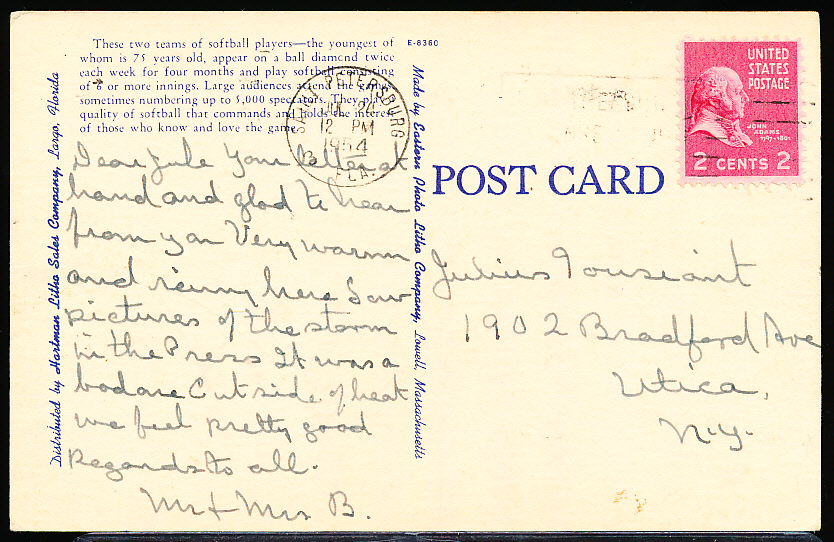 These two teams of softball players—the youngest of
whom is 75 years old, appear on a ball diamond twice
each week for four months and play softball consisting
of 8 or more innings. Large audiences attend the games
sometimes numbering up to 5,000 spectators. They play
quality of softball that commands and holds the interest
of those who know and love the game.
E-8360
Distributed by Hartman Litho Sales Company, Largo, Florida
Dear Jule Your letter at
hand and glad to hear
from you Very warm
and rainy here Saw
pictures of the storm
in the Press It was a
bad one Outside of heat
we feel pretty good
Regards to all.
Mr + Mrs B.
Made by Eastern Photo Litho Company, Lowell, Massachusetts
ST. PETERSBURG
12 PM
1954
FLA.
UNITED
STATES
POSTAGE
JOHN
ADAMS
1797-1801
2 CENTS 2
POST CARD
Julius Tousiant
1902 Bradford Ave
Utica,
N.Y.